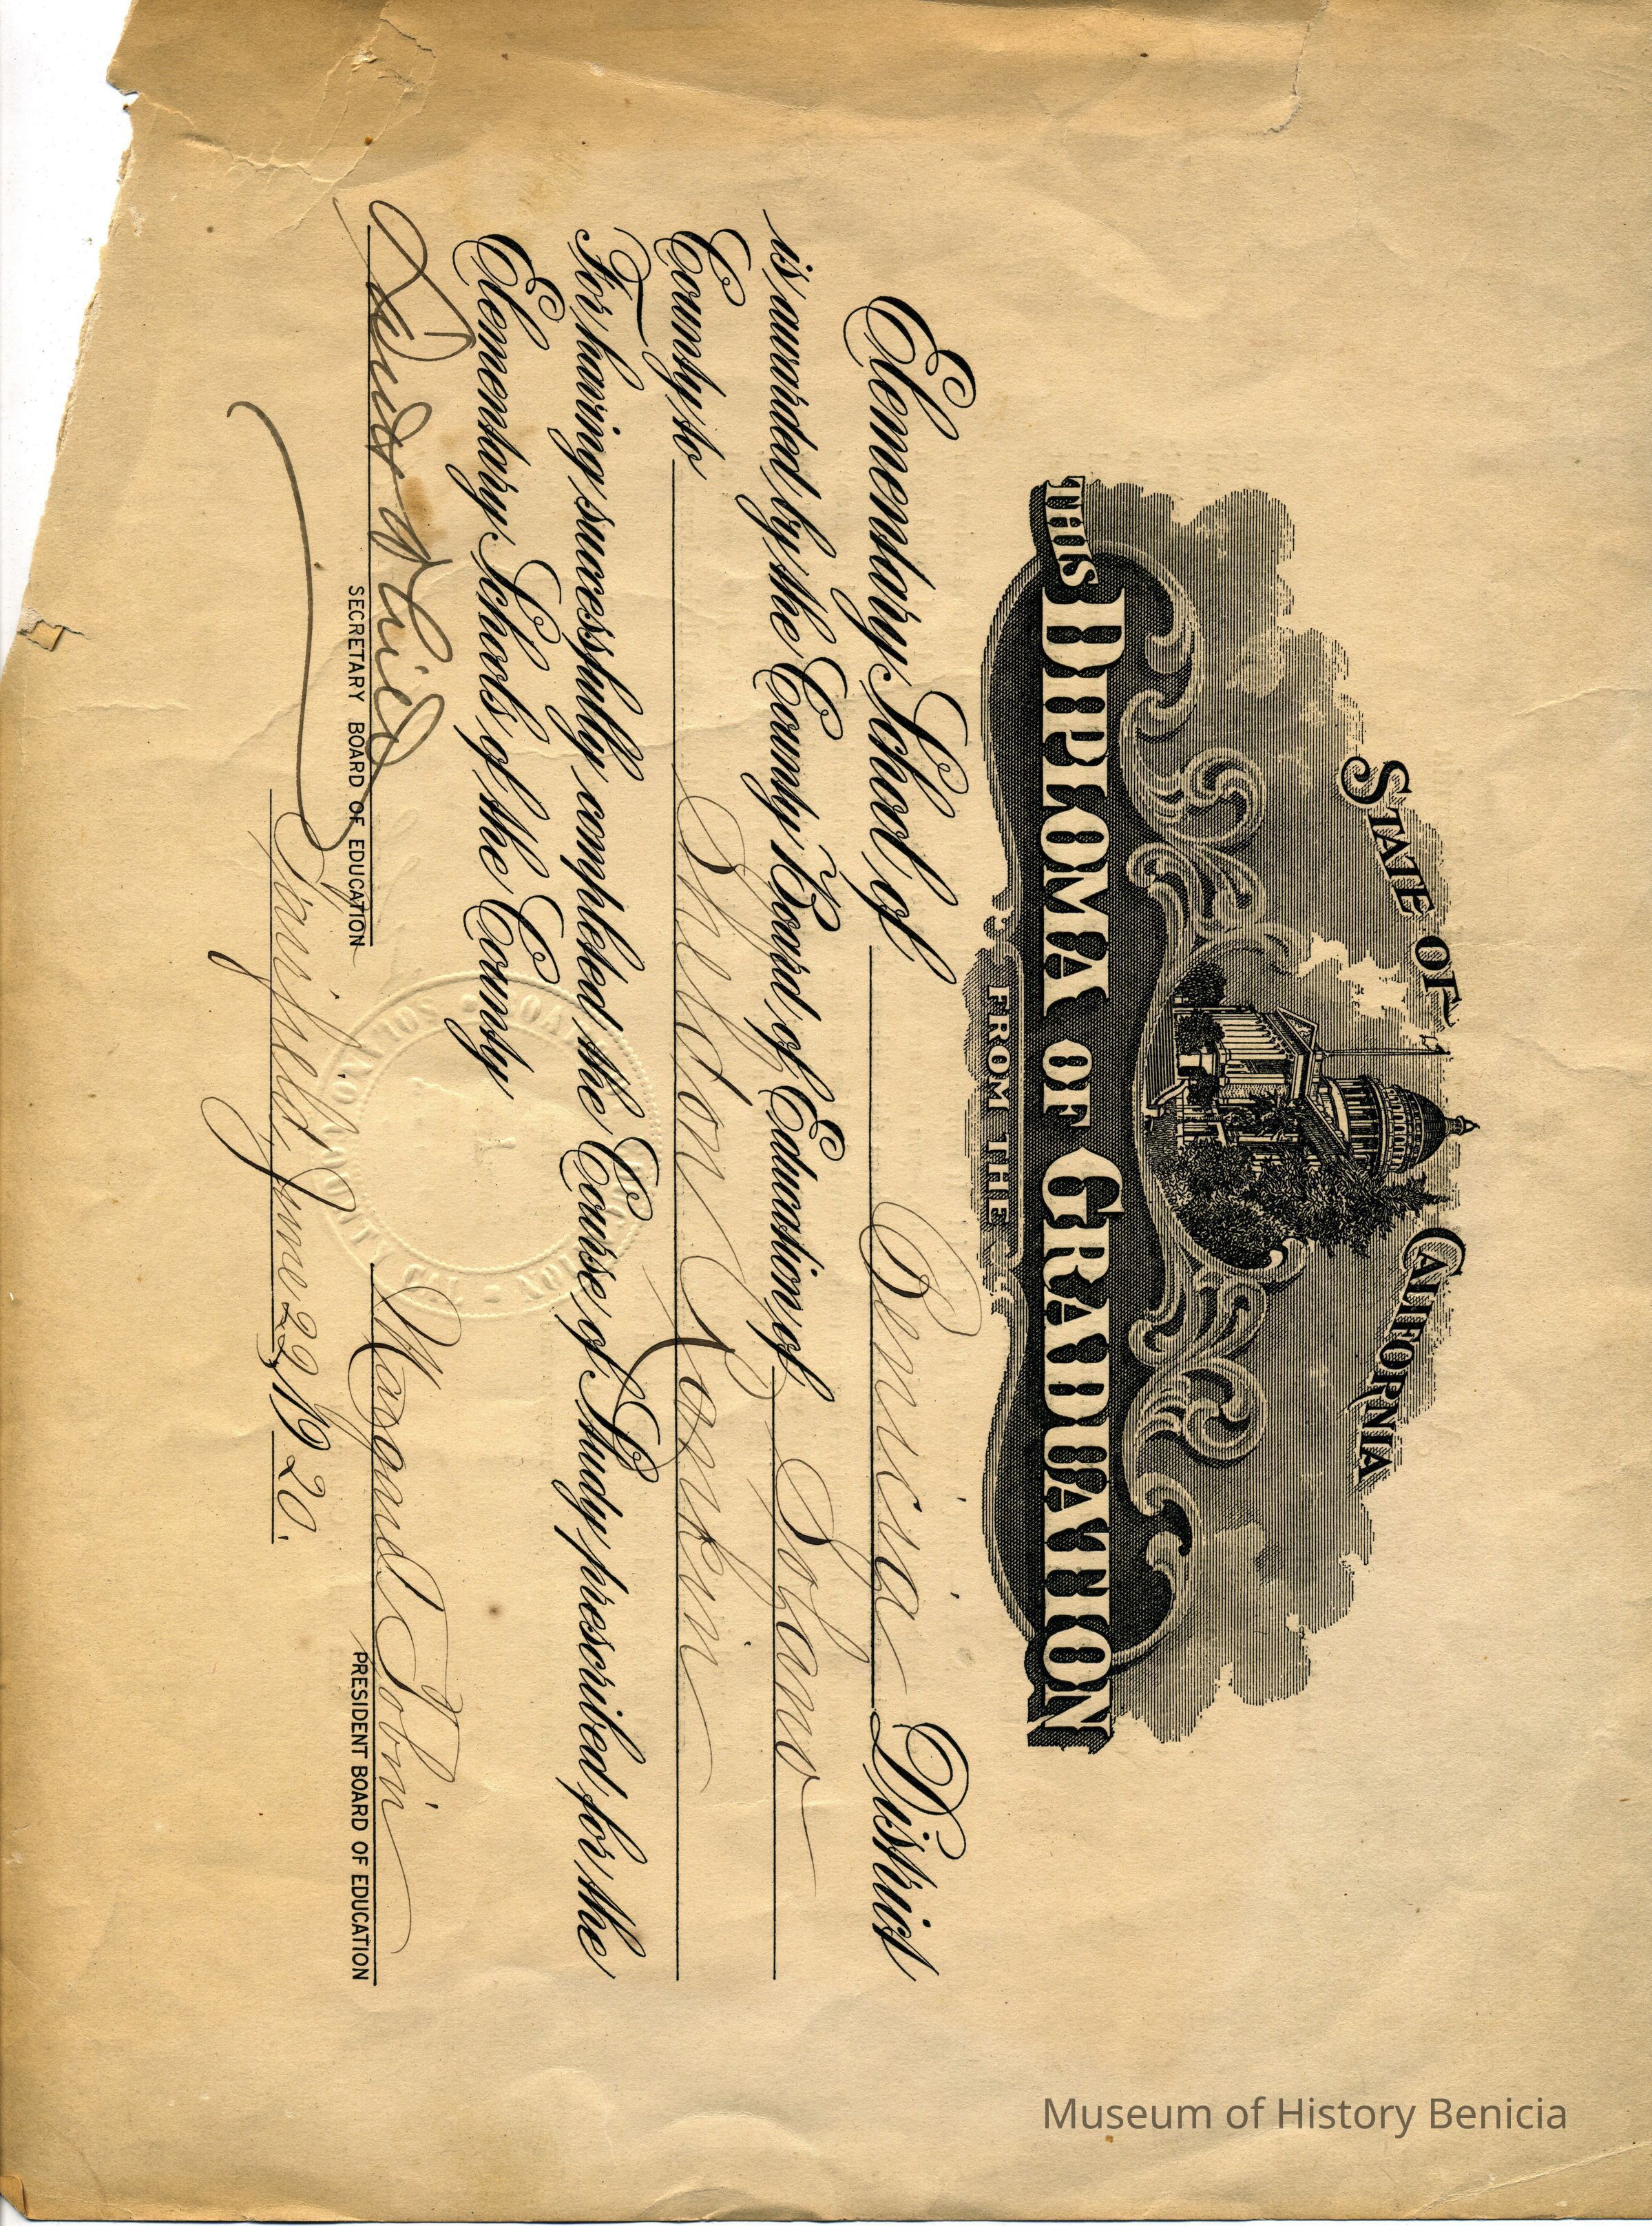 STATE OF CALIFORNIA
THIS DIPLOMA OF GRADUATION
FROM THE
Elementary School of Benicia District
is awarded by the County Board of Education of Solano
County to Shelton Rankin
For having successfully completed the Course of Study prescribed for the
Elementary Schools of the County
Dan H White
Margaret Tobin
SECRETARY BOARD OF EDUCATION
PRESIDENT BOARD OF EDUCATION
Fairfield, June 22, 1920.
Museum of History Benicia